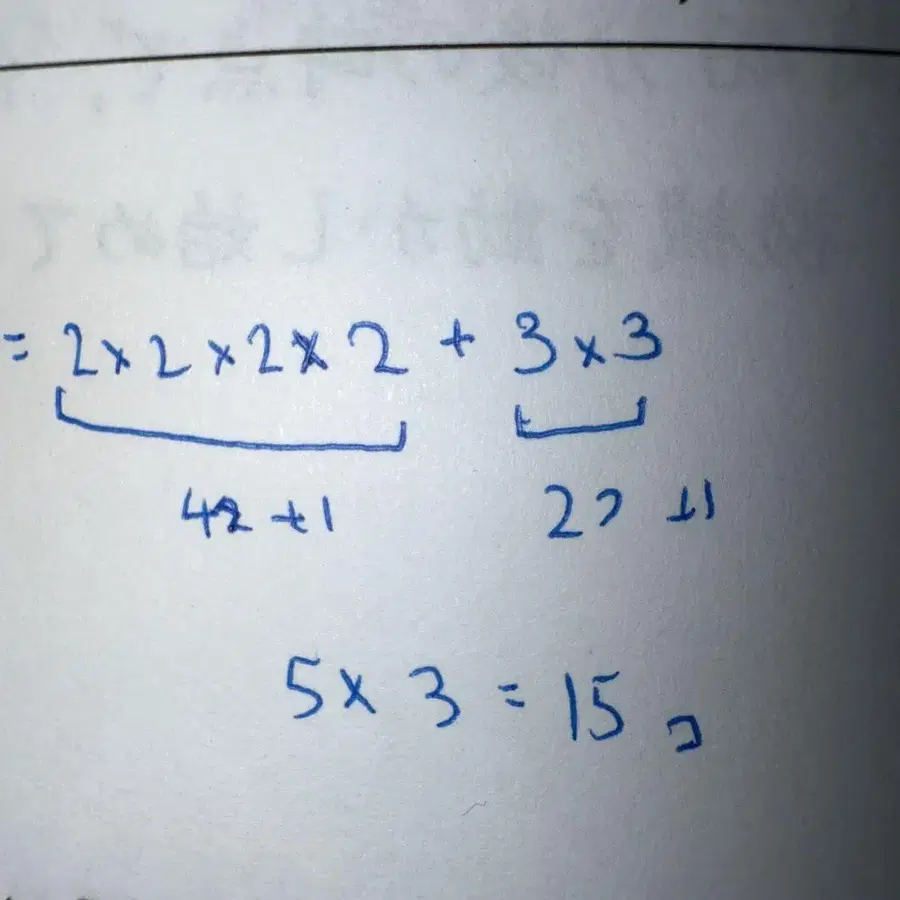 = 2×2×2×2 + 3×3
4つ +1 2つ +1
5×3 = 15